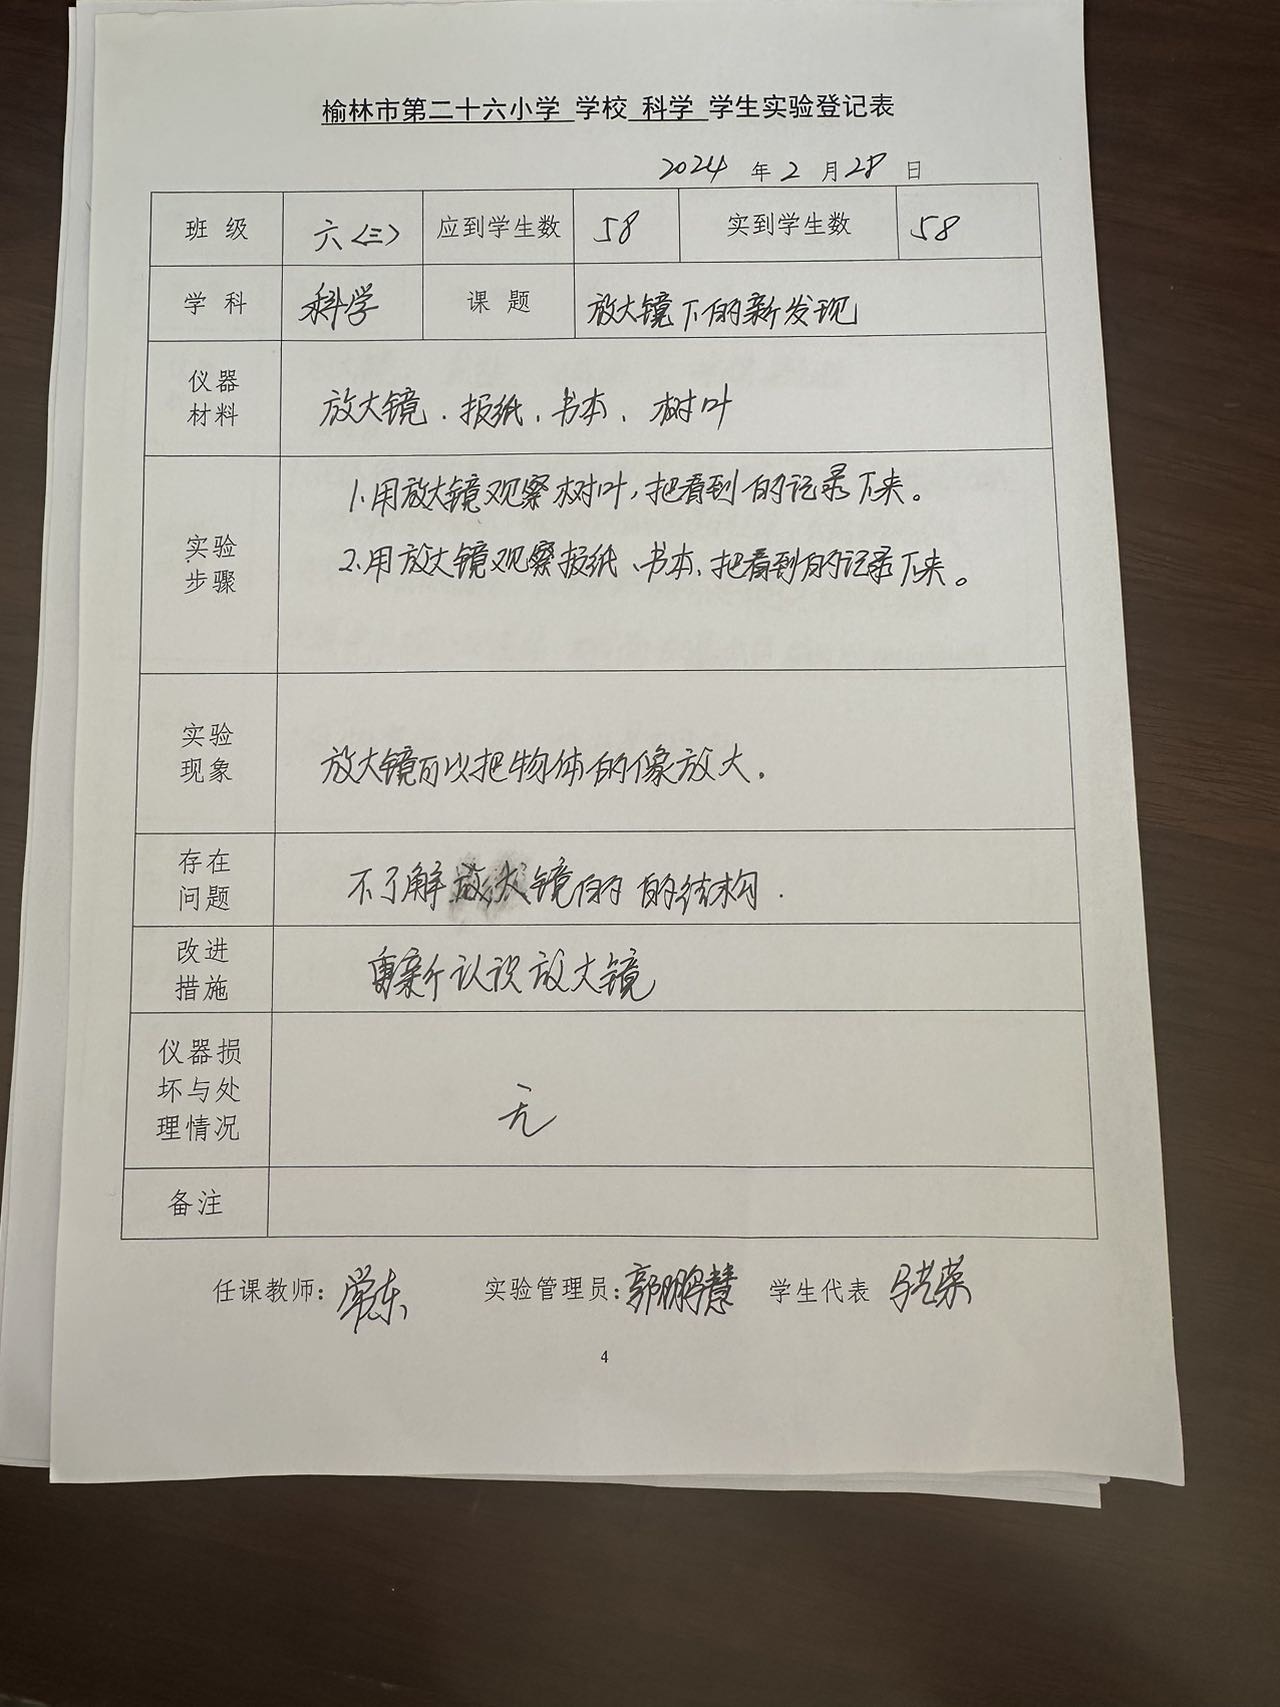 榆林市第二十六小学 学校 科学 学生实验登记表
2024 年 2 月 28 日
班 级 六〈三〉 应到学生数 58 实到学生数 58
学 科 科学 课 题 放大镜下的新发现
仪器
材料
放大镜、报纸、书本、树叶
实验
步骤
1.用放大镜观察树叶,把看到的记录下来。
2.用放大镜观察报纸、书本、把看到的记录下来。
实验
现象
放大镜可以把物体的像放大。
存在
问题
不了解放大镜的的结构.
改进
措施
重新认识放大镜
仪器损
坏与处
理情况
无
备注
任课教师: 实验管理员:郭鹏慧 学生代表
4